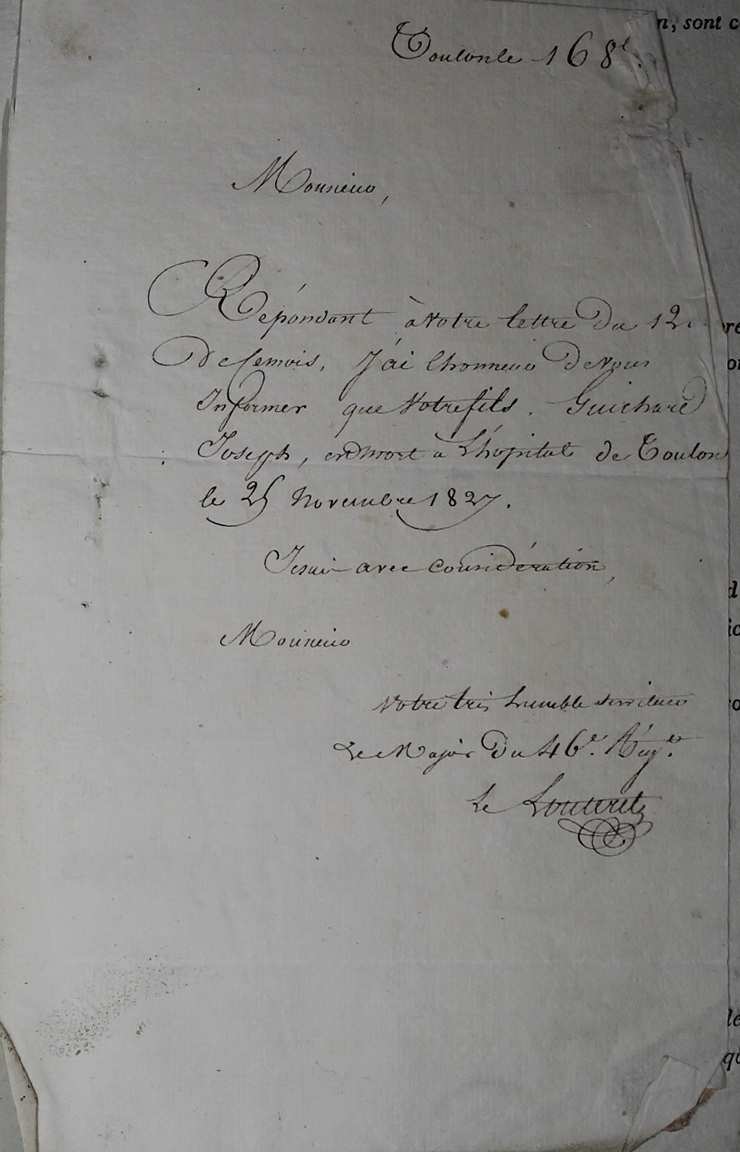 n, sont c
Toulon le 16 8
Monsieur,
Répondant à Votre lettre Du 12
De Cemois, J'ai l'honneur De Vous
Informer que Votre fils, Guichard
Joseph, est mort à L'hopital de Toulon
le 25 Novembre 1827.
Je suis avec considération,
Monsieur
Votre très humble serviteur
Le Major Du 46e. Régt.
Le